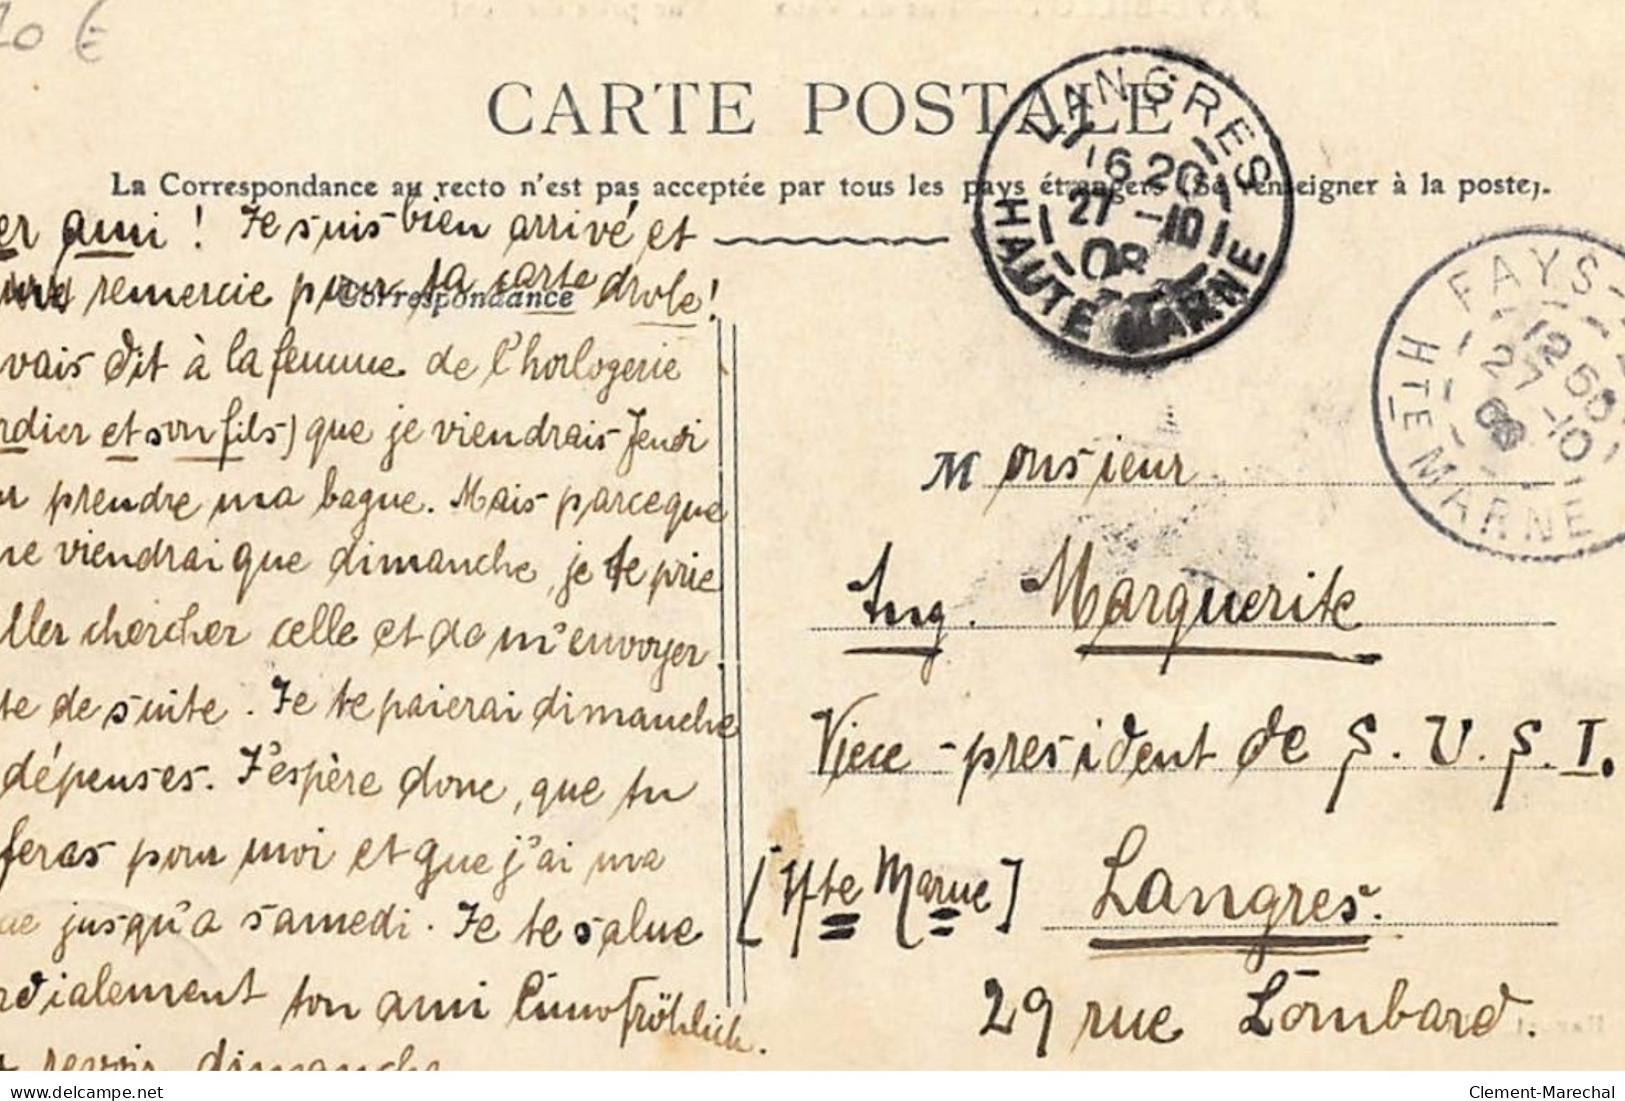 10 €
CARTE POSTALE
La Correspondance au recto n'est pas acceptée par tous les pays étrangers (Se renseigner à la poste).
LANGRES
16 20
27 -10
08
HAUTE MARNE
FAYS-
12 50
27 -10
08
HTE MARNE
er ami ! Je suis bien arrivé et
remercie pour ta carte drole !
Correspondance
vais dit à la femme de l'horlogerie
rdier et son fils) que je viendrais Jeudi
r prendre ma bague. Mais parceque
ne viendrai que dimanche, je te prie
ller chercher celle et de m'envoyer
te de suite. Je te paierai dimanche
dépenses. J'espère donc, que tu
feras pour moi et que j'ai ma
ue jusqu'a samedi. Je te salue
rdialement ton ami Cuno Fröhlich.
revoir dimanche
Monsieur
Aug. Marguerite
Viece-president de S. U. S. I.
[Hte Marne] Langres.
29 rue Lombard.
delcampe.net
Clement-Marechal